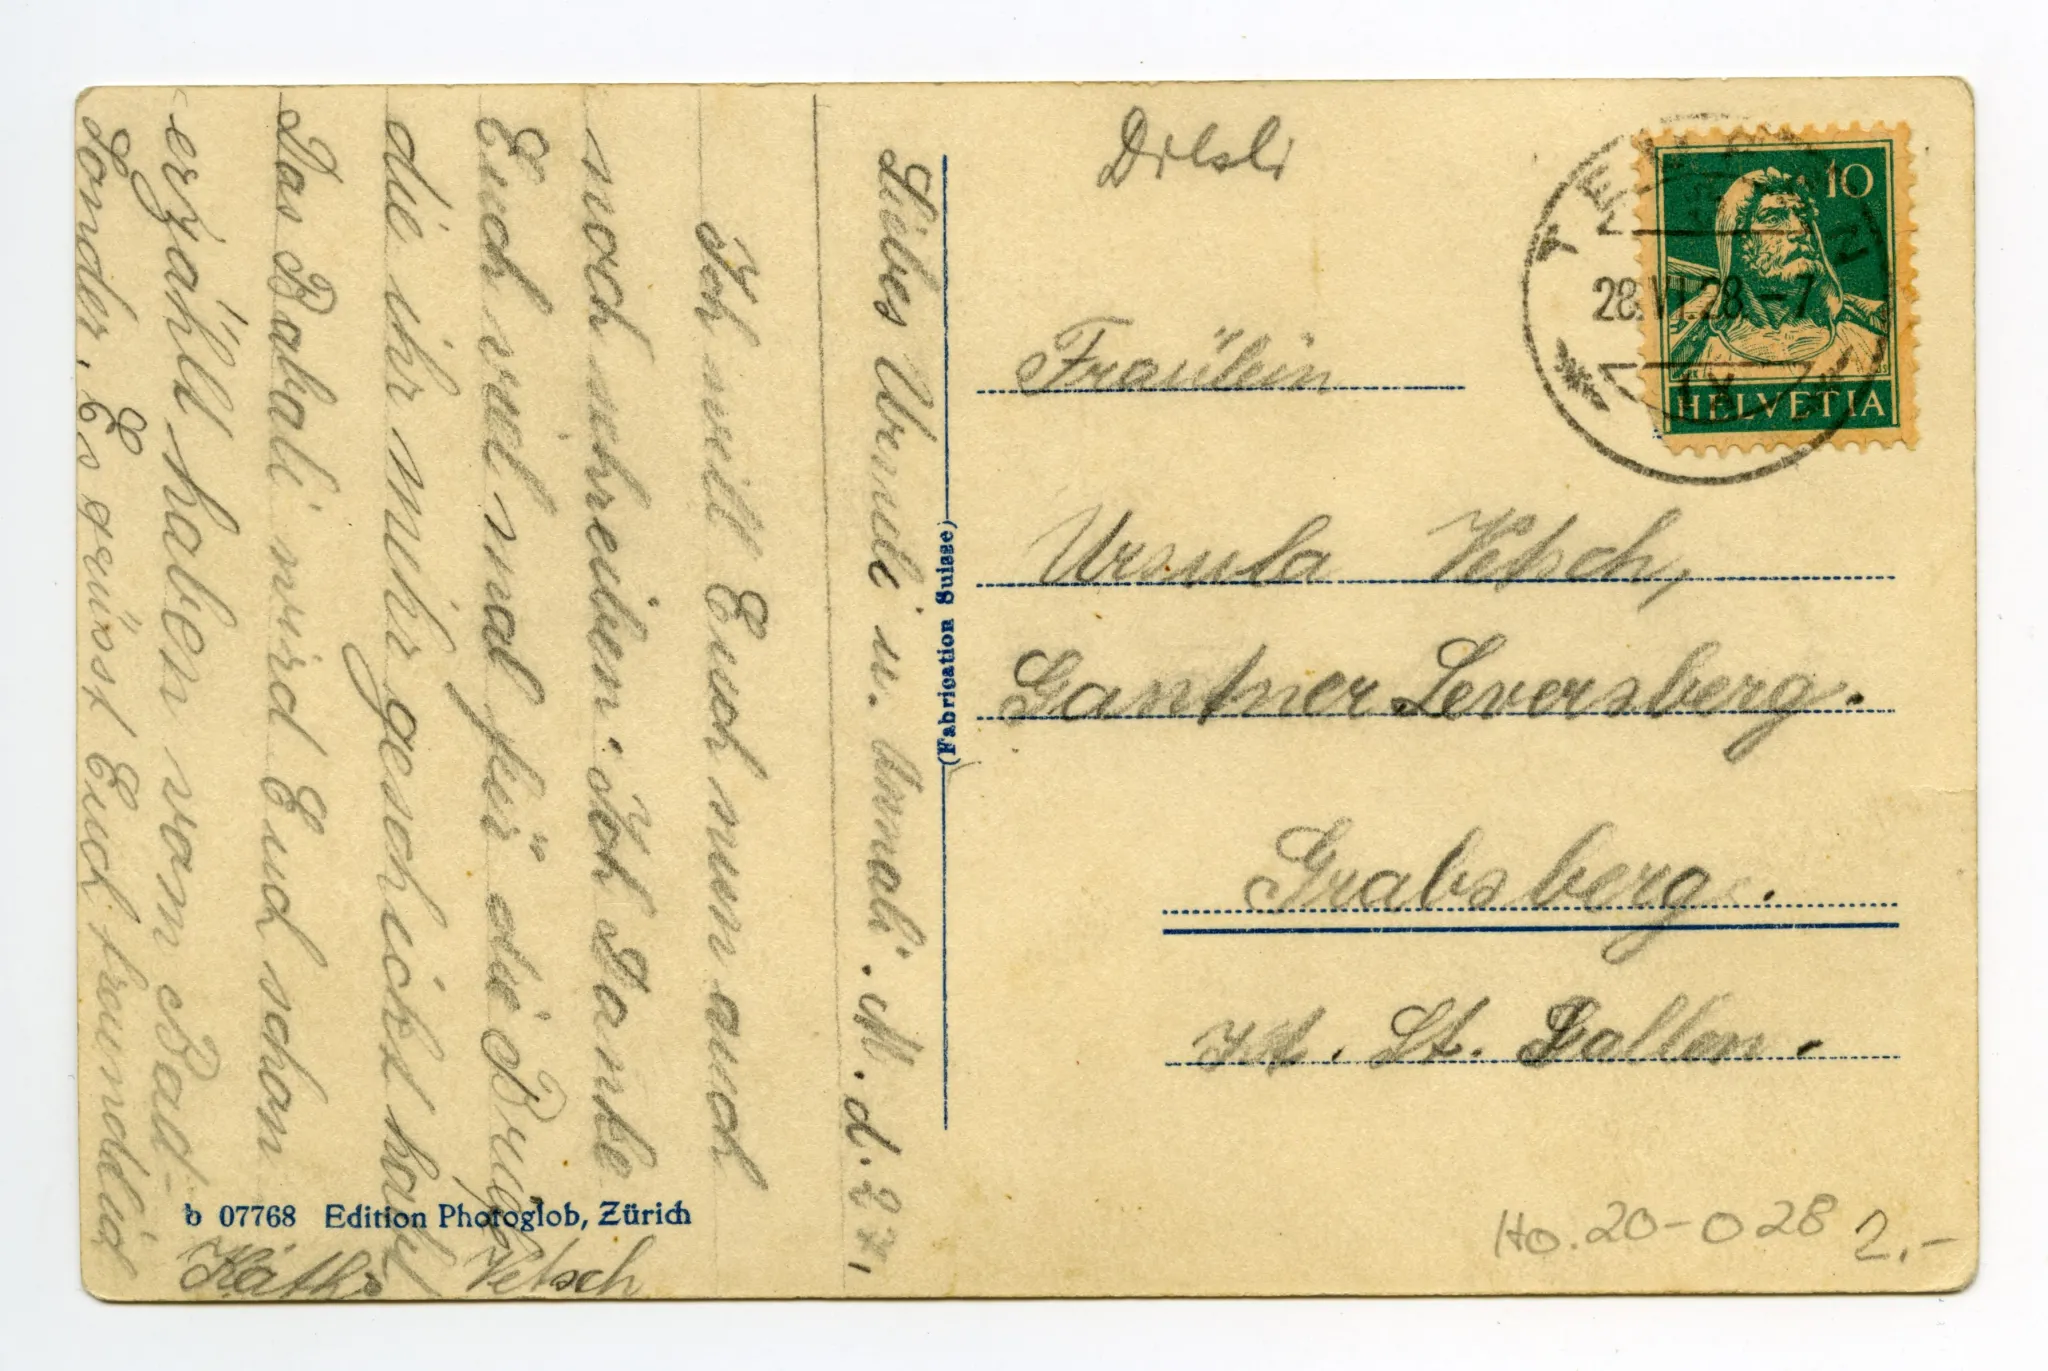 Liebes Urseli u. Annali. M. d. 27,
Ich will Euch nun auch
noch schreiben. Ich Danke
Euch viel mal für die
die ihr mihr geschickt habt
Das Babali wird Euch schon
erzählt haben vom Bad-
Es grüsst Euch freundlich
Käthi Vetsch
b 07768 Edition Photoglob, Zürich
(Fabrication Suisse)
Fraülein
Ursula Vetsch,
Gantner Leversberg.
Grabsberg.
Kt. St. Gallen.
10
HELVETIA
28.VI.28.-7
IX
Ho. 20-028 2.-